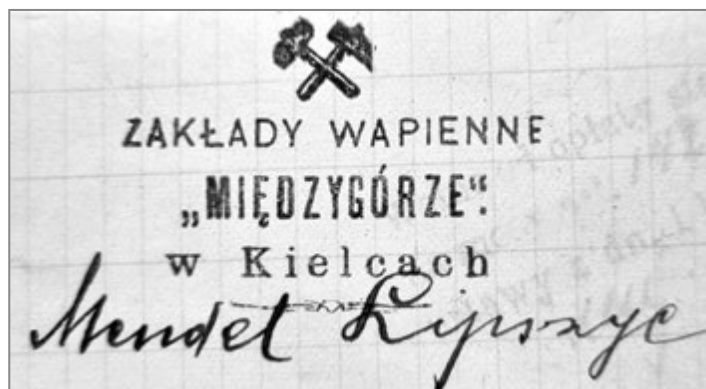 ZAKŁADY WAPIENNE
„MIĘDZYGÓRZE“.
w Kielcach
Mendel Lipszyc